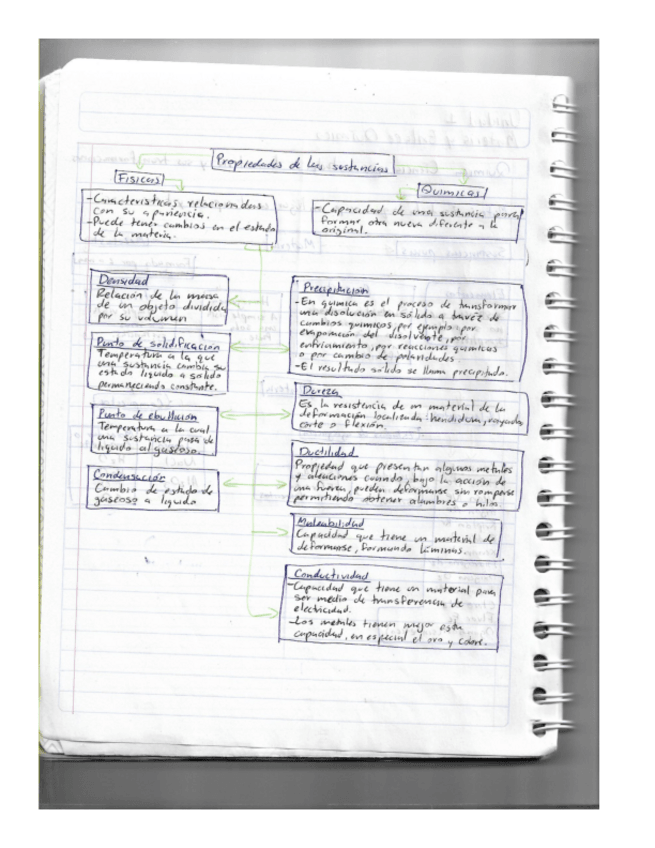 Propiedades de las sustancias
Físicas
-Características relacionadas
con su apariencia.
-Puede tener cambios en el estado
de la materia.
Químicas
-Capacidad de una sustancia para
formar otra nueva diferente a la
original.
Densidad
Relación de la masa
de un objeto dividida
por su volumen
Punto de solidificación
Temperatura a la que
una sustancia cambia su
estado liquido a solido
permaneciendo constante.
Punto de ebullición
Temperatura a la cual
una sustancia pasa de
liquido al gaseoso.
Condensación
Cambio de estado de
gaseoso a liquido
Precipitación
-En química es el proceso de transformar
una disolución en sólido a travez de
cambios químicos, por ejemplo: por
evaporación del disolvente, por
enfriamiento, por reacciones químicas
o por cambio de polaridades.
-El resultado sólido se llama precipitado.
Dureza
Es la resistencia de un material de la
deformación localizada: hendidura, rayado,
corte o flexión.
Ductilidad
Propiedad que presentan algunos metales
y aleaciones cuando, bajo la acción de
una fuerza, pueden deformarse sin romperse
permitiendo obtener alambres o hilos
Maleabilidad
Capacidad que tiene un material de
deformarse, formando láminas.
Conductividad
-Capacidad que tiene un material para
ser medio de transferencia de
electricidad.
-Los metales tienen mejor esta
capacidad, en especial el oro y cobre.